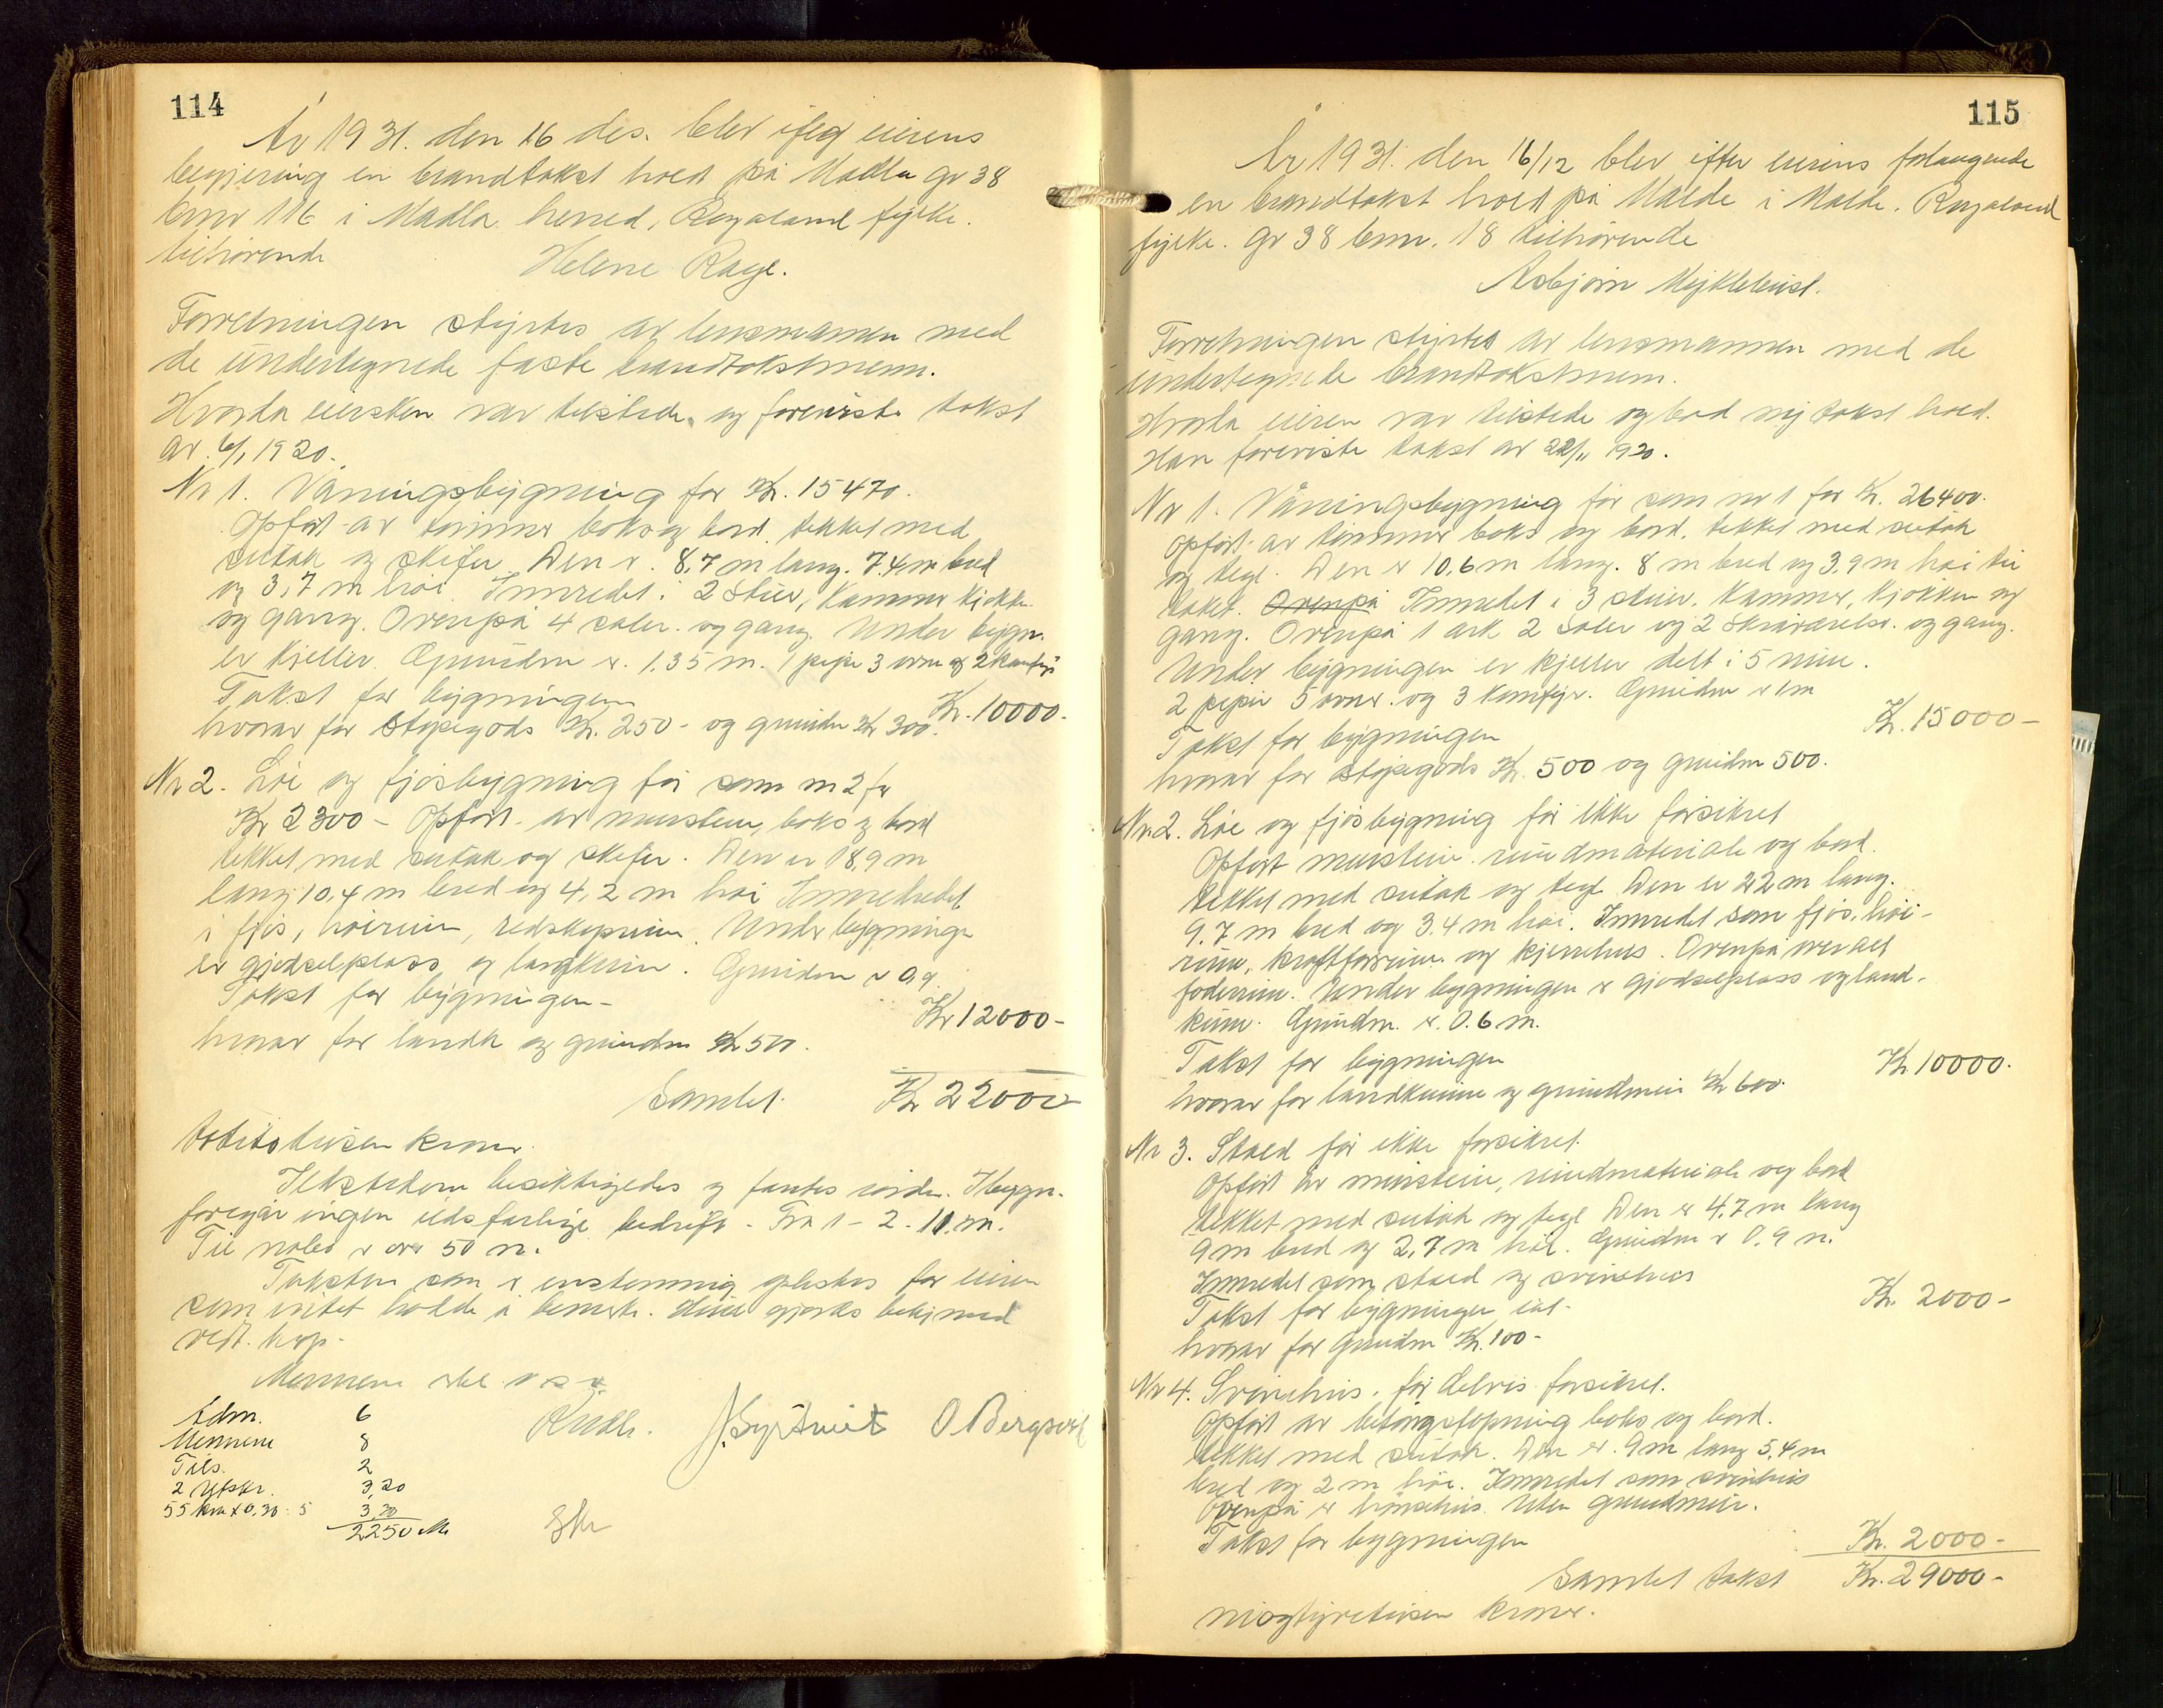 114
År 1931. den 16 des. blev ifølg eierens
begjæring en brandtakst holdt på Madla gr 38
brnr 116 i Madla herred, Rogaland fylke.
tilhørende Helene Rage.
Forretningen styrtes av lensmannen med
de undertegnede faste brandtakstmenn.
Hvorda eiersken var tilstede og foreviste takst
av 6/1 1920.
Nr 1. Våningsbygning for Kr. 15470.
Opført av tømmer boks og bord. tekket med
sutak og skifer. Den er 8,7 m lang. 7.4 m bred
og 3,7 m høi. Innredet i 2 stuer, kammer kjøkken
og gang. Ovenpå 4 saler og gang. Under bygn.
er kjeller. Grundm er 1.35 m. 1 pipe 3 ovne og 2 komfyr
Takst for bygningen Kr. 10000.-
hvorav for støpegods Kr. 250- og grundm Kr 300.
Nr 2. Løe og fjøsbygning før som nr 2 for
Kr 2300 - Opført av murstein, boks og bord
tekket med sutak og skifer. Den er 18,9 m
lang 10,4 m bred og 4,2 m høi Innredet
i fjøs, høirum, redskapsrum. Under bygningen
er gjødselplass og landkum. Grundm er 0,9.
Takst for bygningen - Kr 12000-
hvorav for landk og grundm Kr 500.
Samlet. Kr 22000
totitotusen kroner.
Ildstedene besiktigedes og fantes i orden. I bygn.
foregår ingen ildsfarlige bedrift - Fra 1 - 2 - 11. m.
Til nabo er over 50 m.
Taksten som er enstemmig oplestes for eieren
som intet hadde å bemerke. Hun gjorks bekj med
vedt.
Mennene
Adm. 6
Mennene 8
Tils. 2
2 Utskr. 3,20
55 km x 0,30: 5 3,30
2250
J. Sørtveit O Bergsvik
115
År 1931. den 16/12 blev efter eierens forlangende
en brandtakst holdt på Malde i Malde. Rogaland
fylke. gr 38 brnr. 18 tilhørende
Asbjørn Mykletveit.
Forretningen styrtes av lensmannen med de
undertegnede brandtakstmenn.
Hvorda eieren var tilstede og bad ny takst holdt.
Han foreviste takst av 22/11 1920.
Nr 1. Våningsbygning før som nr 1 for Kr. 26400.
Opført av tømmer boks og bord. tekket med sutak
og tegl. Den er 10,6 m lang. 8 m bred og 3,9 m høi til
taket. Ovenpå Innredet i 3 stuer. kammer, kjøkken og
gang. Ovenpå 1 ark 2 saler og 2 skråværelser og gang.
Under bygningen er kjeller delt i 5 rum.
2 piper 5 ovner og 3 komfyr. Grundm er 1 m
Takst for bygningen Kr. 15000-
hvorav for støpegods Kr. 500 og grundm 500.
Nr. 2. Løe og fjøsbygning før ikke forsikret
Opført murstein. rundmateriale og bord.
tekket med sutak og tegl Den er 22 m lang.
9.7 m bred og 3.4 m høi. Innredet som fjøs, høi-
rum, kraftforrum og kjerrehus. Ovenpå overalt
foderrum. Under bygningen er gjødselplass og land-
kum. Grundm. er 0.6 m.
Takst for bygningen Kr 10000.
hvorav for landkumme og grundmur Kr 600.
Nr 3. Stald før ikke forsikret.
Opført av murstein, rundmateriale og bord
tekket med sutak og tegl Den er 4.7 m lang
9 m bred og 2,7 m høi. Grundm er 0.9 m.
Innredet som stald og svinehus
Takst for bygningen Kr. 2000-
hvorav for grundm Kr. 100-
Nr 4. Svinehus. før delvis forsikret.
Opført av betongstøpning boks og bord.
tekket med sutak. Den er 9 m lang 5,4 m
bred og 2 m høi. Innredet som svinehus
Ovenpå er hønsehus. Uten grundmur.
Takst for bygningen Kr. 2000-
Samlet takst Kr. 29000-
niogtyvetusen kroner.